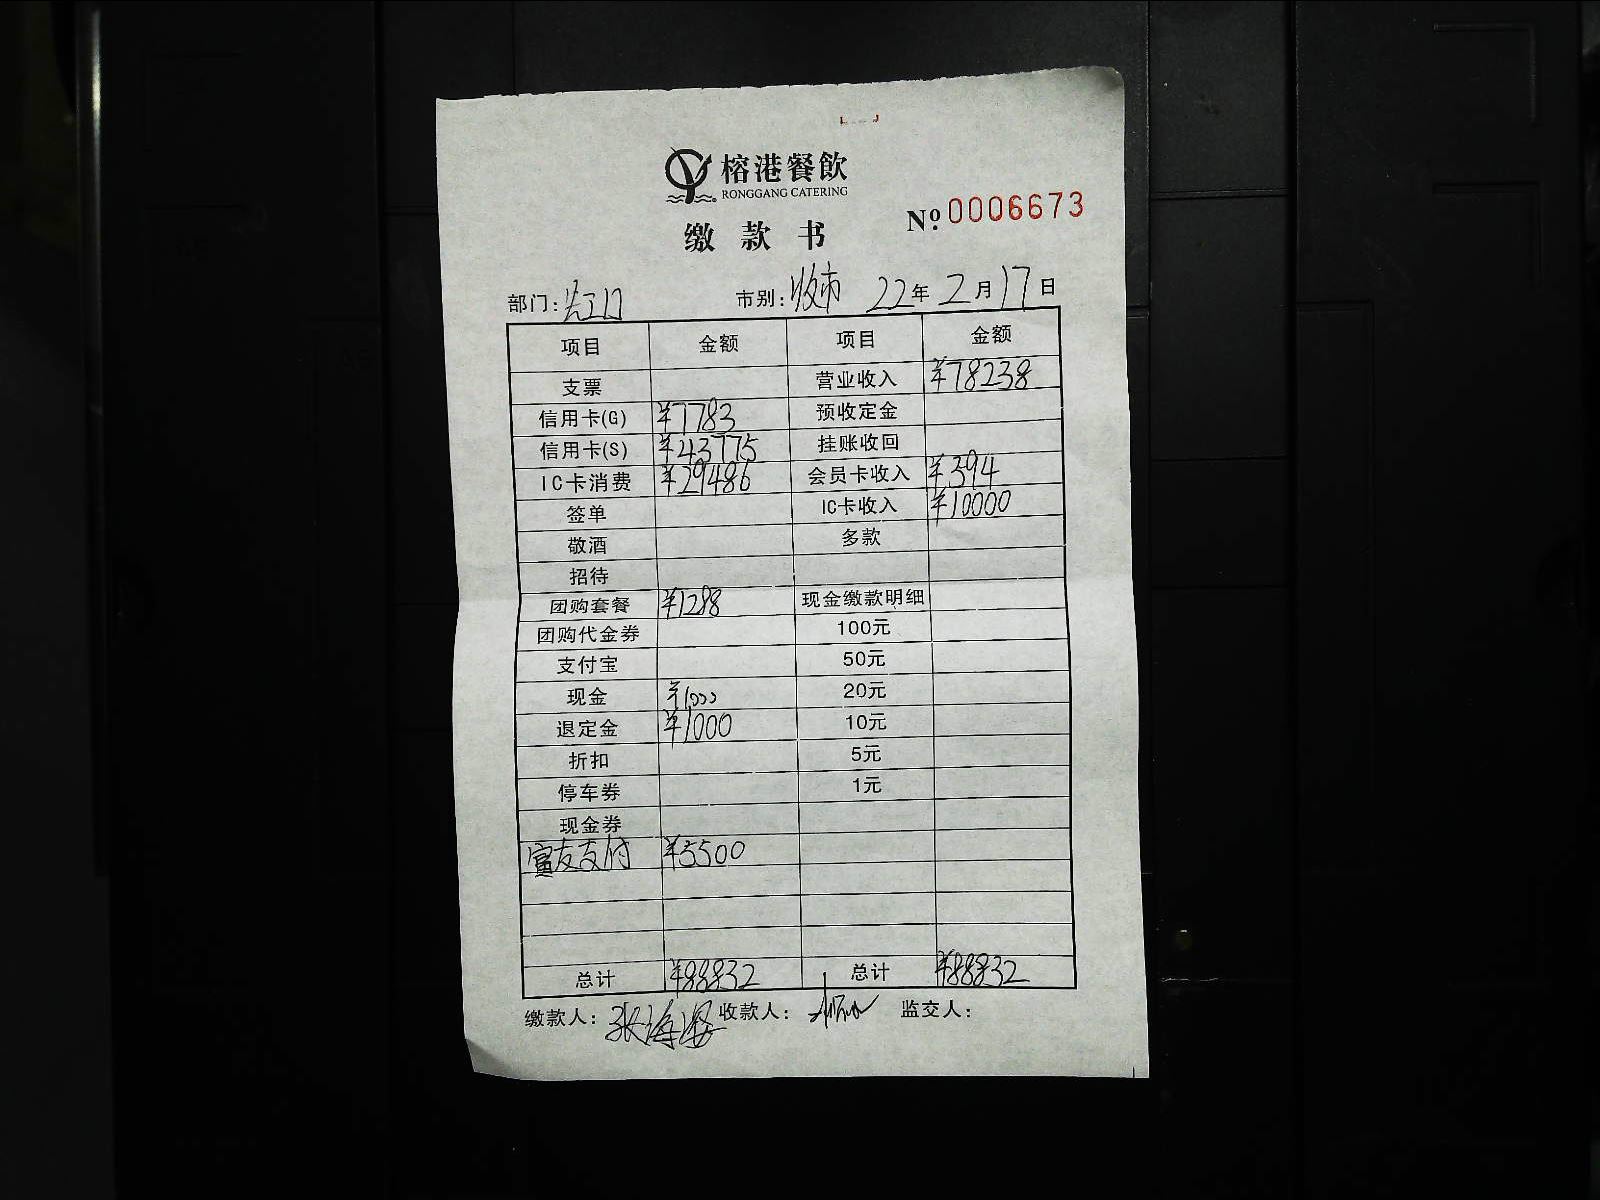 榕港餐飲
RONGGANG CATERING
№ 0006673
缴款书
部门: 江门 市别: 收市 22年2月17日
项目 金额 项目 金额
支票 营业收入 ¥78238
信用卡(G) ¥7783 预收定金
信用卡(S) ¥43775 挂账收回
IC卡消费 ¥29486 会员卡收入 ¥394
签单 IC卡收入 ¥10000
敬酒 多款
招待
团购套餐 ¥1288 现金缴款明细
团购代金券 100元
支付宝 50元
现金 ¥1000 20元
退定金 ¥1000 10元
折扣 5元
停车券 1元
现金券
富友支付 ¥5500
总计 ¥88832 总计 ¥88832
缴款人: 张海 收款人: 监交人: